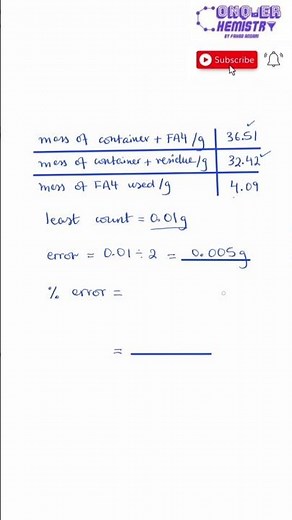 CONQUER
CHEMISTRY
Subscribe
mass of container + FA4 /g 36.51
mass of container + residue /g 32.42
mass of FA4 used /g 4.09
least count = 0.01g
error = 0.01 ÷ 2 = 0.005g
% error =
=